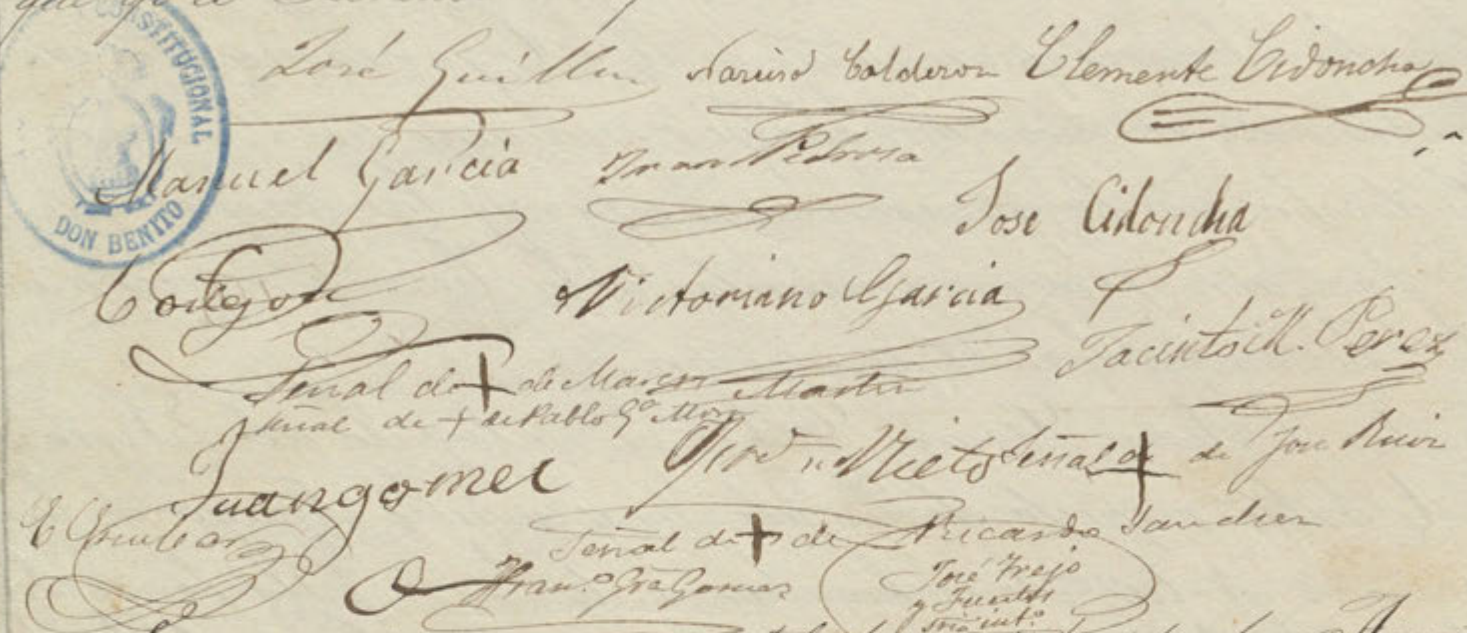 que yo el
CONSTITUCIONAL
DON BENITO
José Guillen Narciso Calderon Clemente Cidoncha
Manuel Garcia Juan Pedrosa
Jose Cidoncha
Victoriano Garcia
Jacinto M. Perez
Señal de + de Marcos Martin
Señal de + de Pablo Gª
Nieto Señal de + de Jose Ruiz
Juan gomez
Señal de + de Ricardo Sanchez
Fran.º Gª Gomez
José Trejo
y Fuentes
Srio int.º